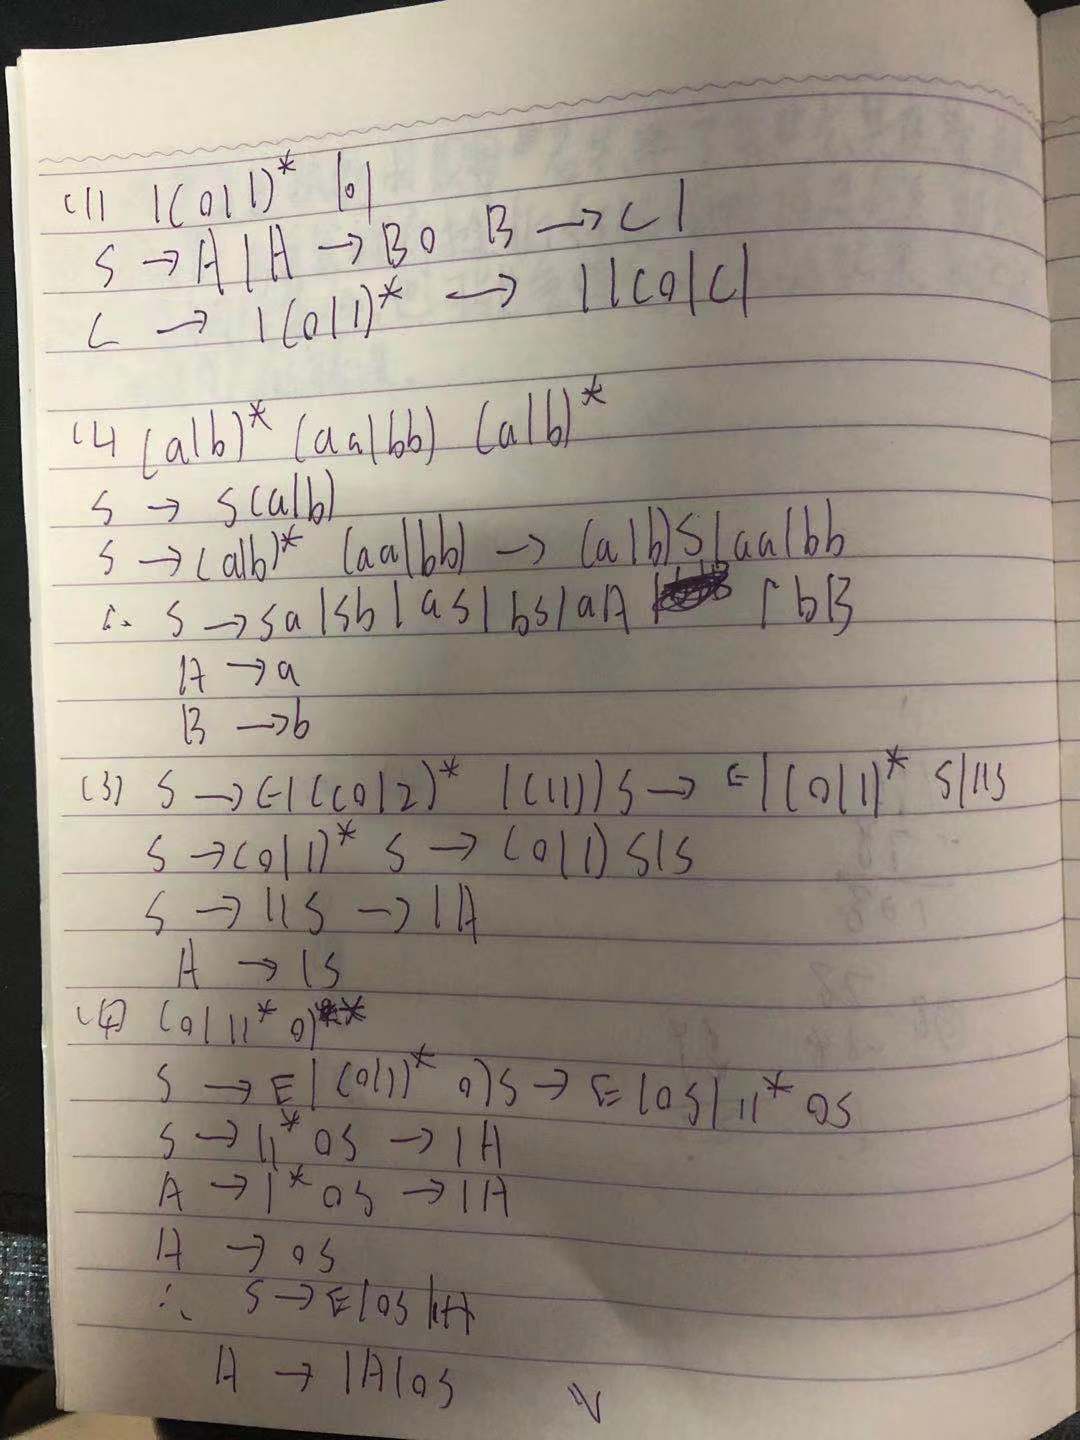 (1) 1(0|1)* 101
S → A1 A → B0 B → C1
C → 1(0|1)* → 1|C0|C1
(2) (a|b)* (aa|bb) (a|b)*
S → S(a|b)
S → (a|b)* (aa|bb) → (a|b)S|aa|bb
∴ S → Sa|Sb|aS|bS|aA |bB
A → a
B → b
(3) S → ε|((0|2)* |(11))S → ε|(0|1)* S|11S
S → (0|1)* S → (0|1)S|S
S → 11S → 1A
A → 1S
(4) (0|11*0)*
S → ε|(0|1)* 0)S → ε|0S|11* 0S
S → 11* 0S → 1A
A → 1* 0S → 1A
A → 0S
∴ S → ε|0S|1A
A → 1A|0S